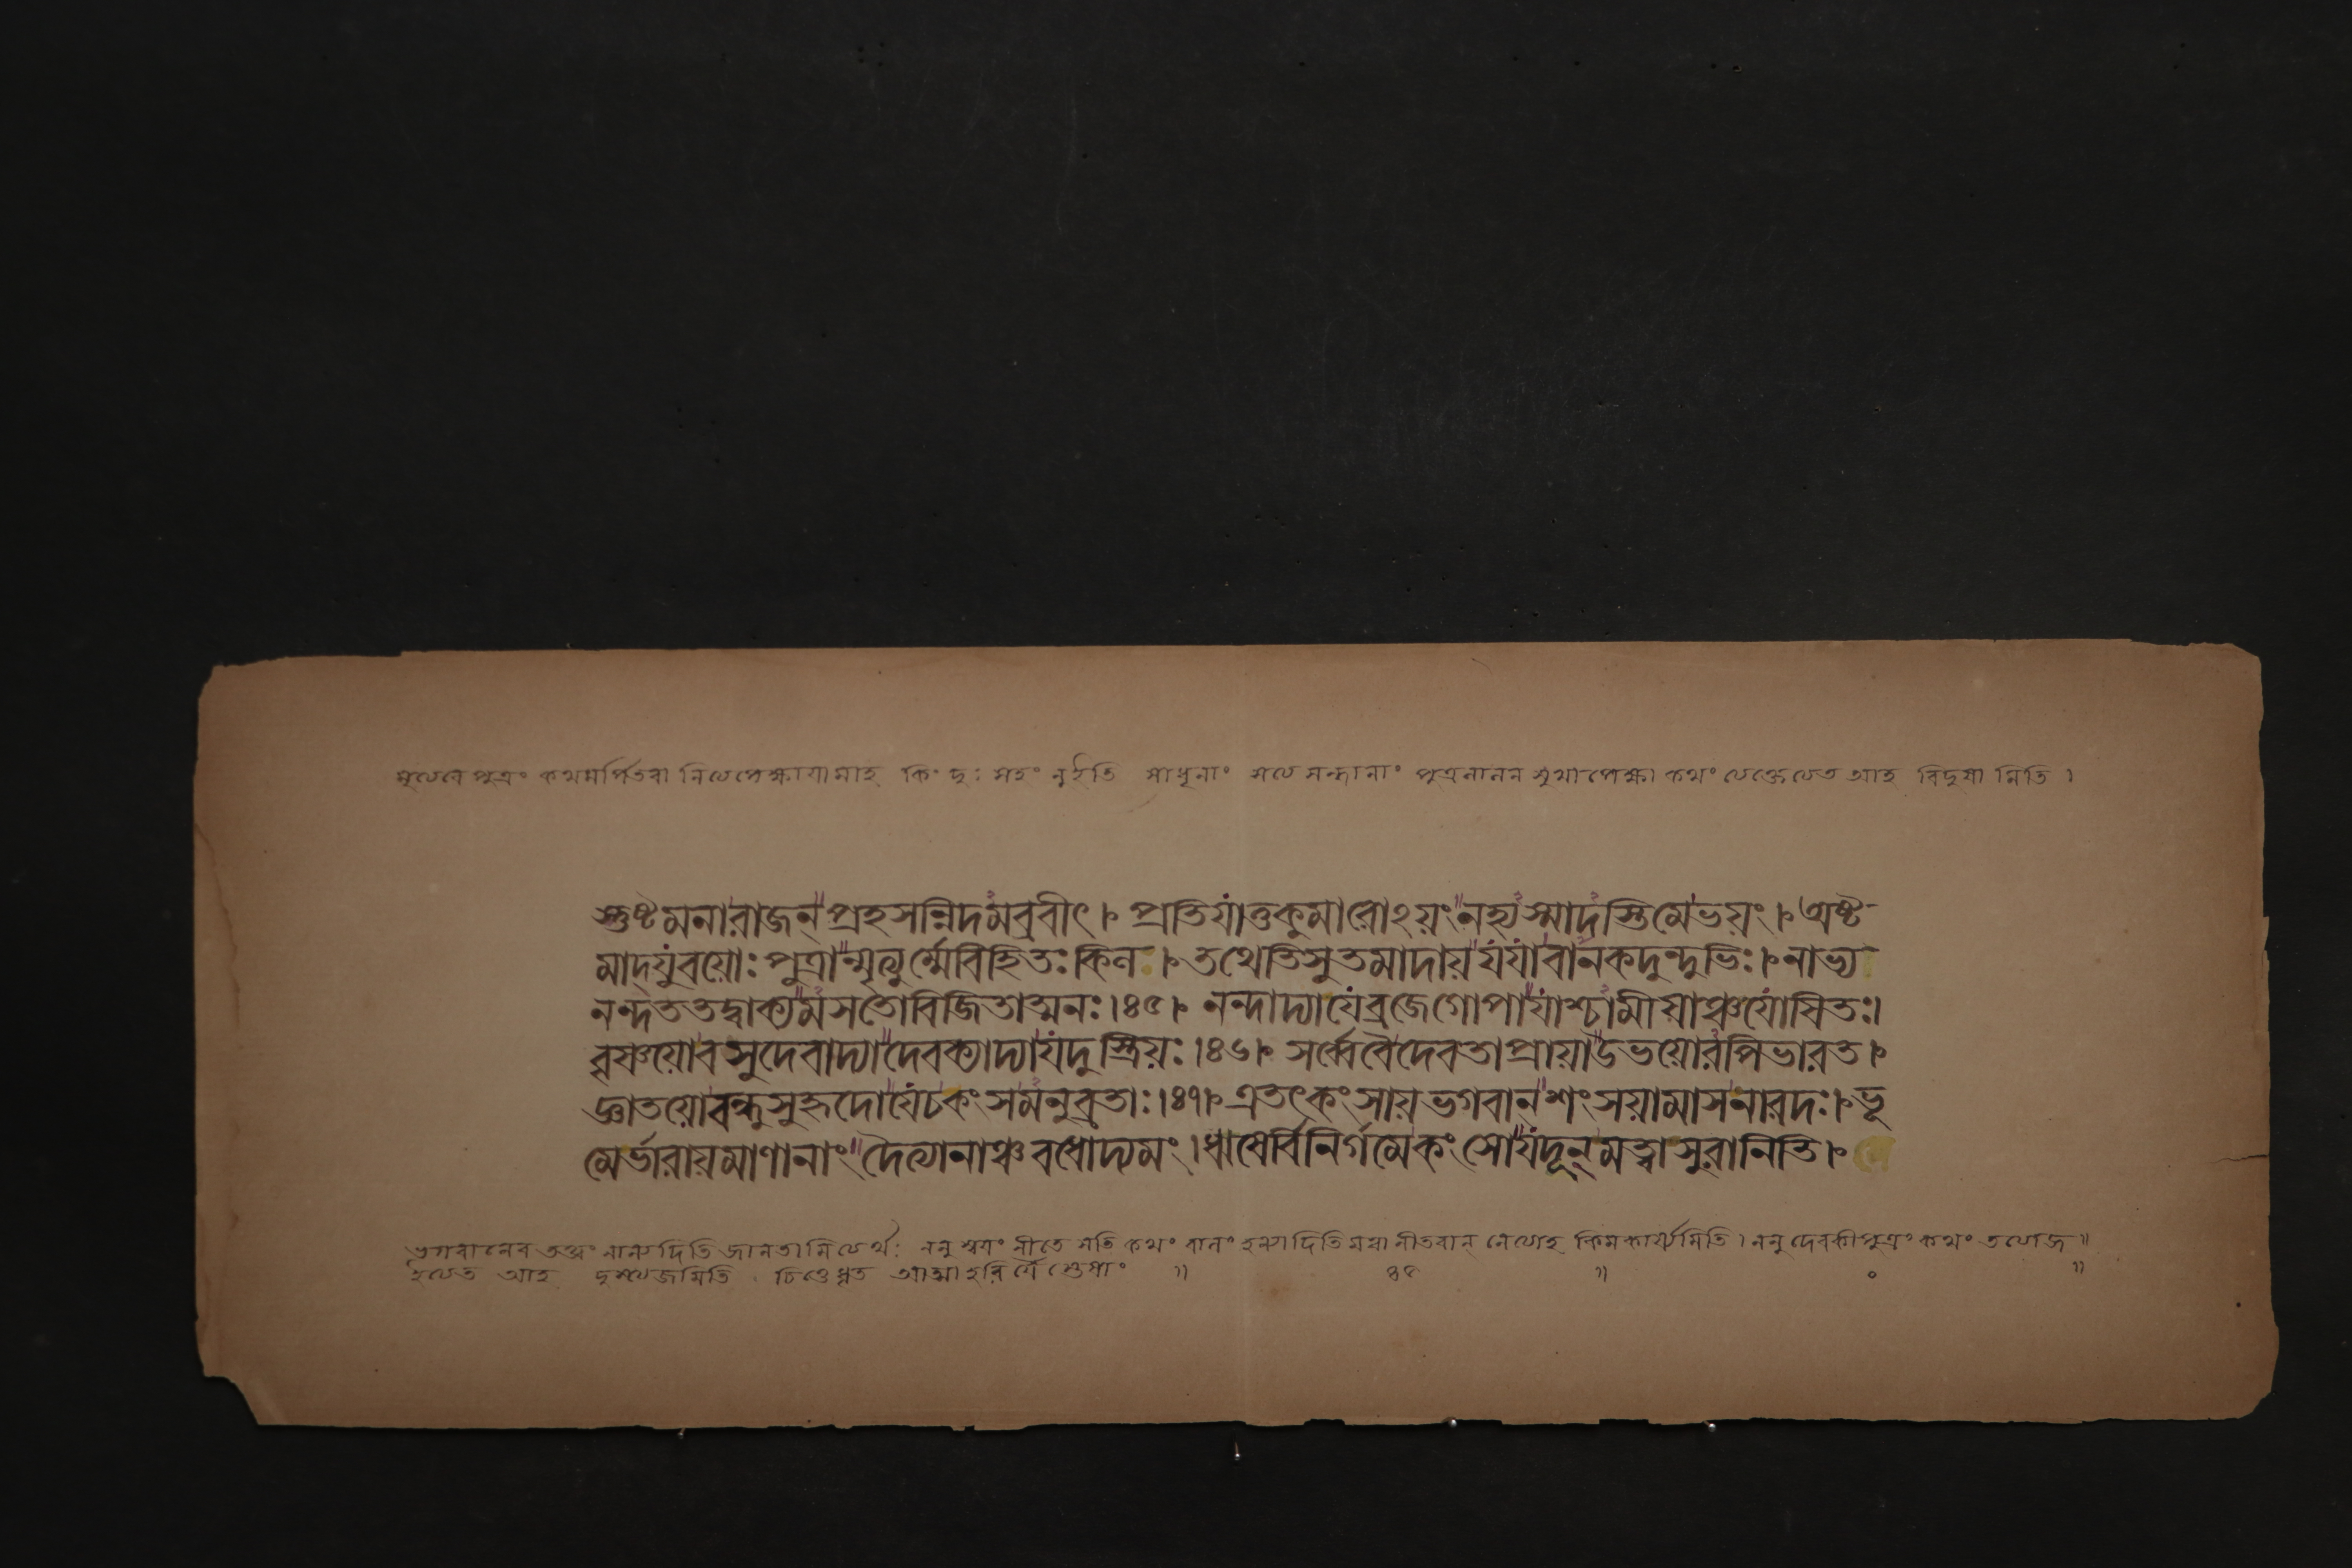 মৃত্যবে পুত্রং কথমর্পিতবা নিত্যপেক্ষায়ামাহ কিং দুঃ সহং নুইতি সাধূনাং সত্য সন্ধানাং পুত্রলালন সুখাপেক্ষা কথং ত্যক্তেত্যত আহ বিদুষা মিতি ।
স্তুষ্টমনারাজন্ প্রহসন্নিদমব্রবীৎ । প্রতিযাতুকুমারোঽয়ং নহ্যস্মাদস্তিমেভয়ং । অষ্ট
মাদ্যুবয়োঃ পুত্রান্মৃত্যুর্ম্মেবিহিতঃকিল । তথেতিসুতমাদায় যযাবানকদুন্দুভিঃ । নাভ্য
নন্দততদ্বাক্যমসতোবিজিতাত্মনঃ ।৪৫। নন্দাদ্যাযেব্রজেগোপাযাশ্চামীষাঞ্চযোষিতঃ।
বৃষ্ণয়োবসুদেবাদ্যাদেবক্যাদ্যাযদুস্ত্রিয়ঃ ।৪৬। সর্ব্বেবৈদেবতাপ্রায়াউভয়োরপিভারত ।
জ্ঞাতয়োবন্ধুসুহৃদোযেচকংসমনুব্রতাঃ ।৪৭। এতৎকংসায়ভগবান্শংসয়ামাসনারদঃ । ভূ
মের্ভারায়মাণানাং দৈত্যানাঞ্চবধোদ্যমং । ঋষের্বিনির্গমেকংসোযদূন্মত্বাসুরানিতি ।
ভগবানেব তত্ত্বং নান্যদিতি জানতা মিত্যর্থঃ ননু স্বয়ং নীতে সতি কথং বালং হন্যাদিতি মত্বা নীতবান্ নেত্যাহ কিমকার্য্যমিতি । ননু দেবকীপুত্রং কথং তত্যাজ ॥
ইত্যত আহ দুস্ত্যজমিতি চিত্তেধৃত আত্মা হরির্যৈ স্তেষাং ॥ ৪৫ ॥ ॰ ॥